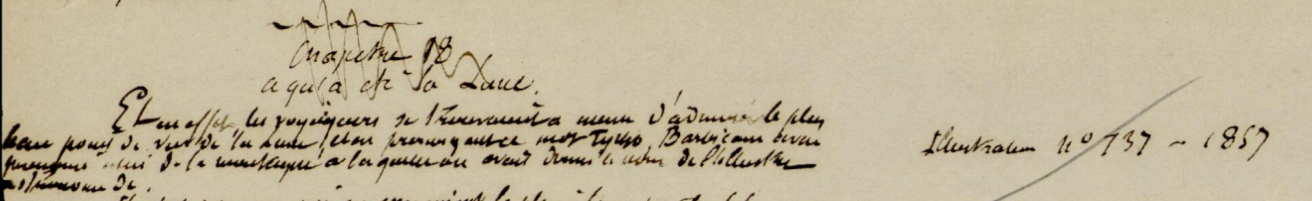 Chapitre 18
a qu'a été la Lune.
Et en effet, les voyageurs se trouvaient a meme d'admirer le plus
beau point de vue de la Lune, et en prononçant ce mot Tycho, Barbicane avait
prononcé celui de la montagne a laquelle on avait donné le nom de l'illustre
astronome de.
Illustration n° 737 – 1857